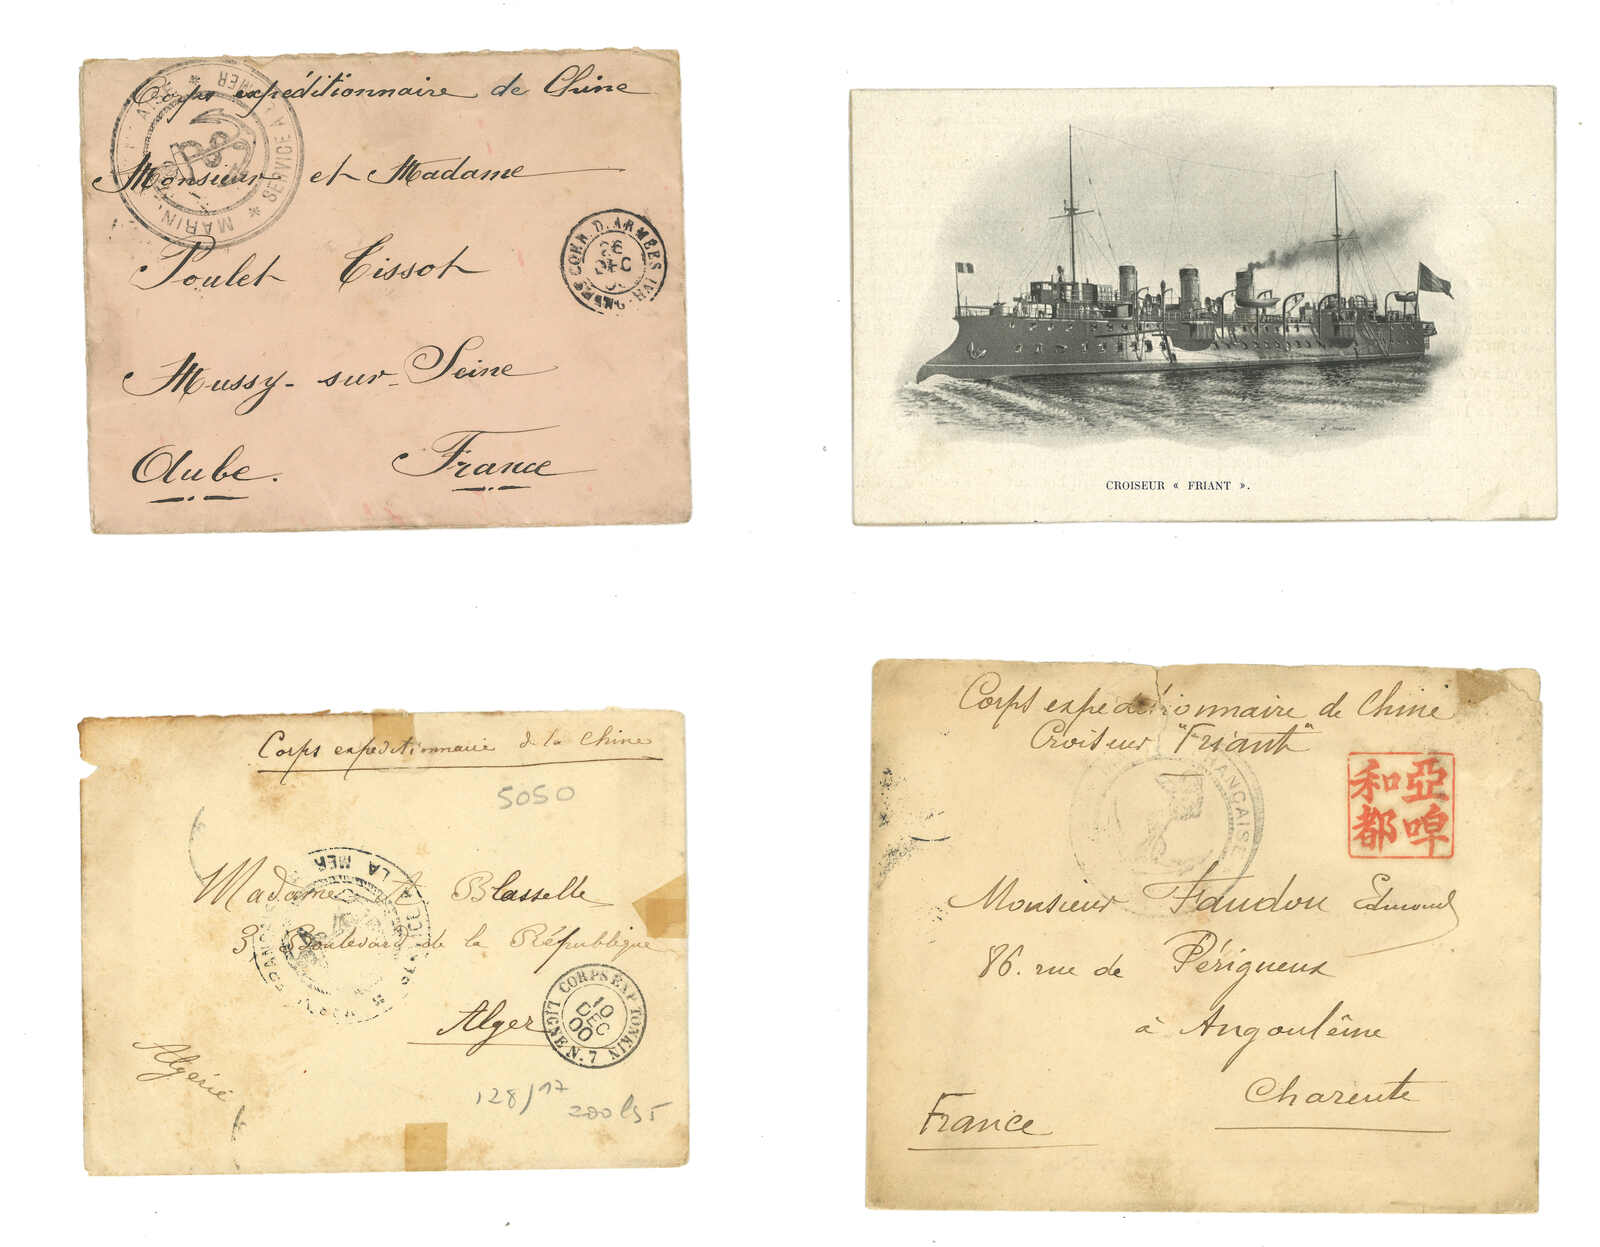 Corps expéditionnaire de Chine
Monsieur et Madame
Poulet Tissot
Mussy-sur-Seine
Aube. France
MARINE
SERVICE A LA MER
CORR. D. ARMEES
26
DEC
CROISEUR « FRIANT ».
Corps expeditionnaire de la Chine
5050
Madame Blasselle
3 Boulevard de la République
Alger
Algérie
LA MER
CORPS EXP. TONKIN
LIGNE N. 7
10
DEC
00
128/17
Corps expeditionnaire de Chine
Croiseur "Friant"
FRANÇAISE
亞
啤
和
都
Monsieur Faudou Edmond
86. rue de Périgueux
à Angoulême
Charente
France